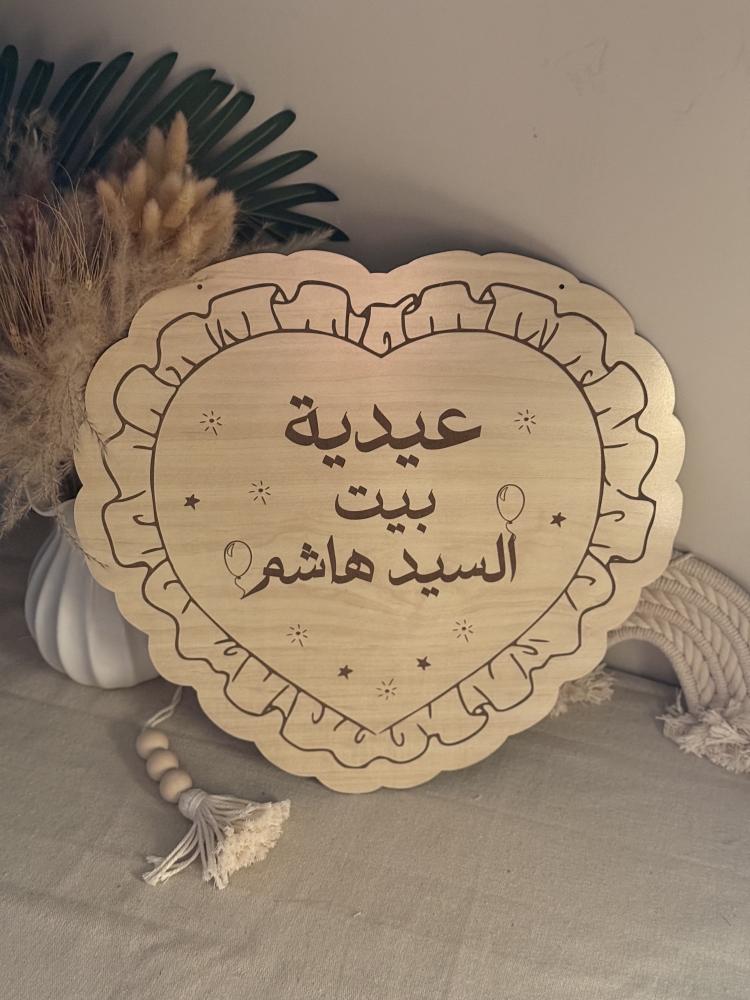 عيدية
بيت
السيد هاشم